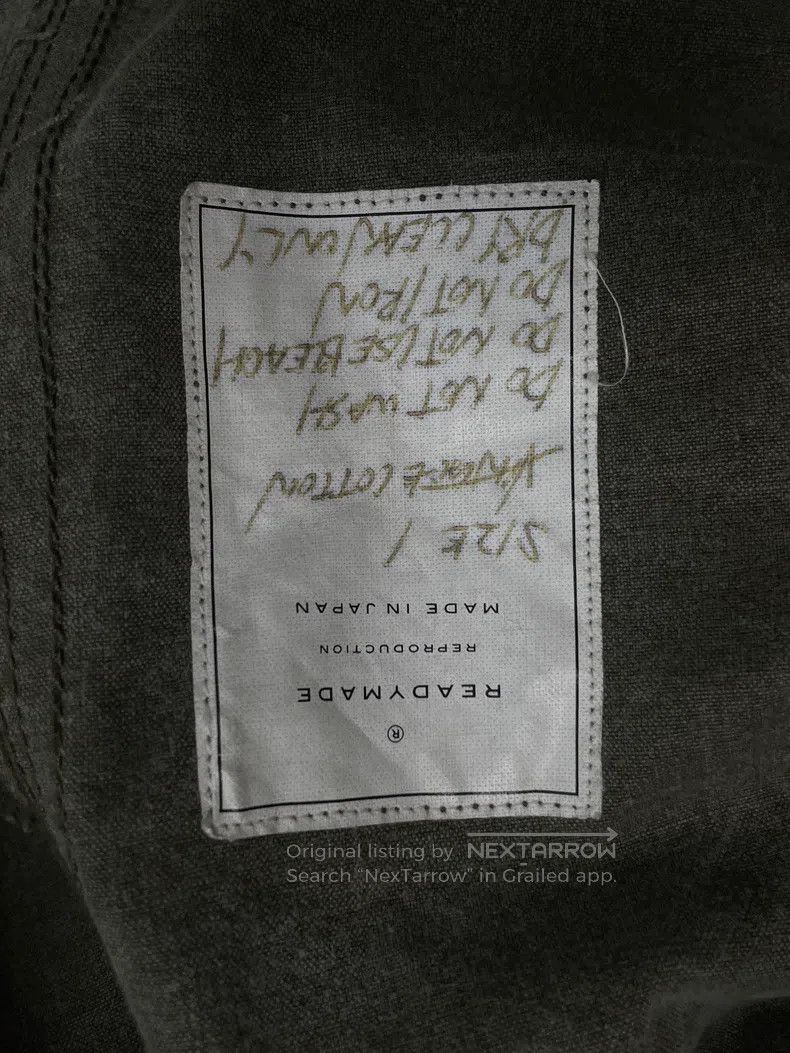 ®
READYMADE
REPRODUCTION
MADE IN JAPAN
SIZE 1
COTTON
DO NOT WASH
DO NOT USE BEACH
DO NOT IRON
DRY CLEAN ONLY
Original listing by NEXTARROW
Search "NexTarrow" in Grailed app.